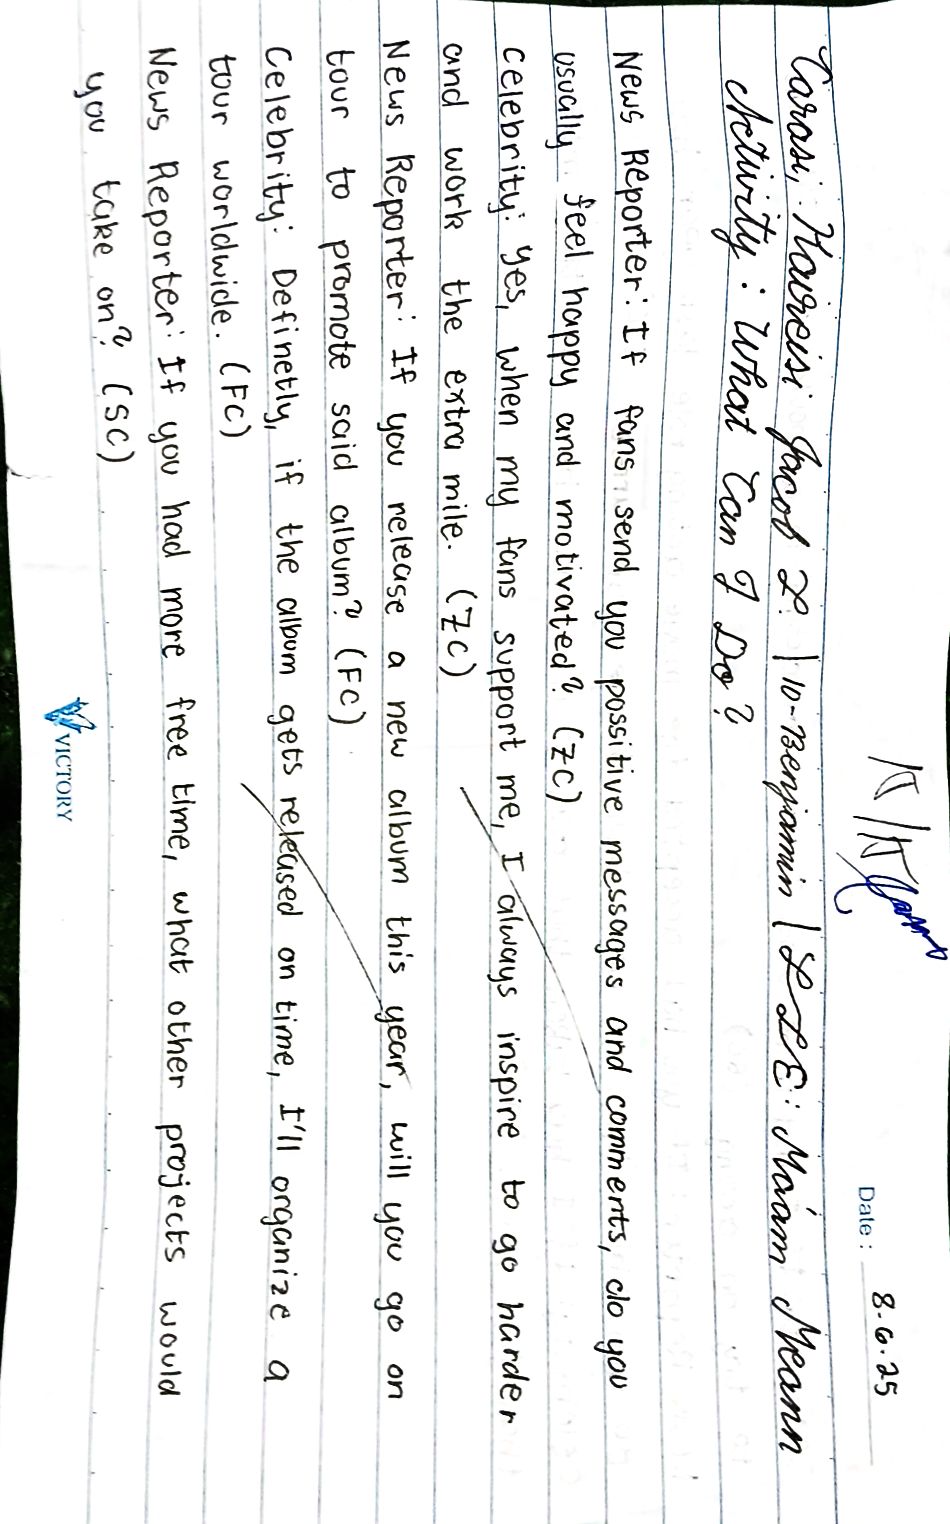 Date: 8.6.25
Carasi, Haureisi Jacob L. | 10-Benjamin | LLE: Ma'am Meann
Activity: What Can I Do?
News Reporter: If fans send you possitive messages and comments, do you
usually feel happy and motivated? (ZC)
Celebrity: Yes, when my fans support me, I always inspire to go harder
and work the extra mile. (ZC)
News Reporter: If you release a new album this year, will you go on
tour to promote said album? (FC)
Celebrity: Definetly, if the album gets released on time, I'll organize a
tour worldwide. (FC)
News Reporter: If you had more free time, what other projects would
you take on? (SC)
VICTORY